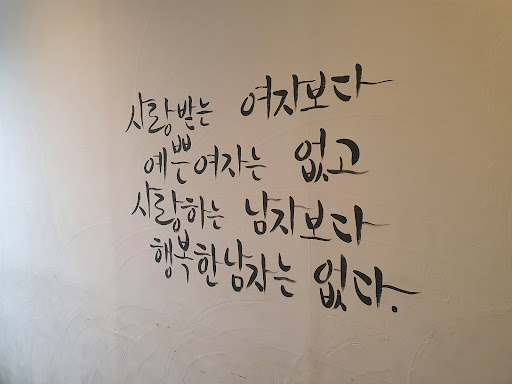 사랑받는 여자보다
예쁜 여자는 없고
사랑하는 남자보다
행복한 남자는 없다.